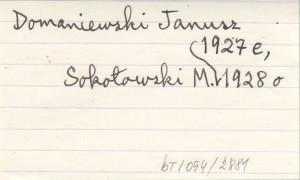 Domaniewski Janusz
1927 e,
Sokołowski M. 1928 o
bT/054/2881